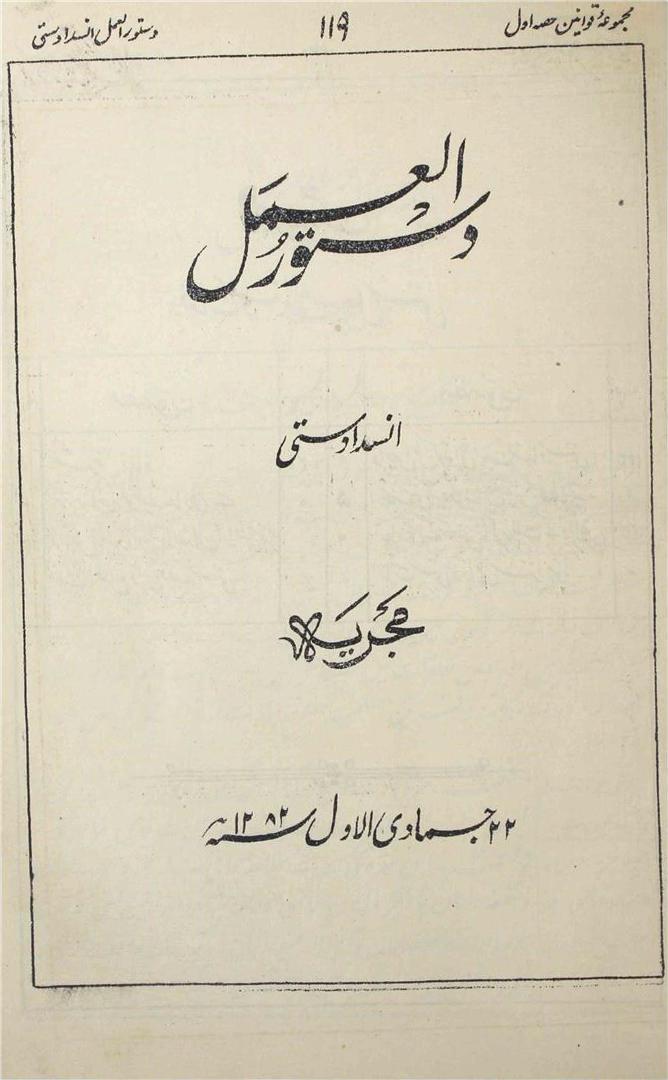 مجموعۂ قوانین حصہ اول ۱۱۹ دستور العمل انسداد ستی
دستور العمل
انسداد ستی
مجریہ
۲۲ جمادی الاول سنہ ۱۲۸۲ھ